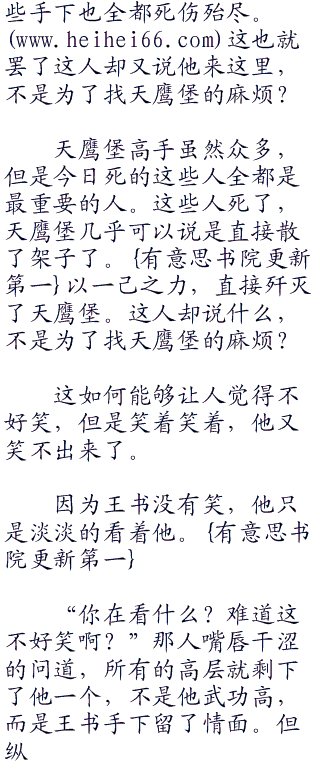 些手下也全都死伤殆尽。
(www.heihei66.com)这也就
罢了这人却又说他来这里，
不是为了找天鹰堡的麻烦？
天鹰堡高手虽然众多，
但是今日死的这些人全都是
最重要的人。这些人死了，
天鹰堡几乎可以说是直接散
了架子了。{有意思书院更新
第一}以一己之力，直接歼灭
了天鹰堡。这人却说什么，
不是为了找天鹰堡的麻烦？
这如何能够让人觉得不
好笑，但是笑着笑着，他又
笑不出来了。
因为王书没有笑，他只
是淡淡的看着他。{有意思书
院更新第一}
“你在看什么？难道这
不好笑啊？”那人嘴唇干涩
的问道，所有的高层就剩下
了他一个，不是他武功高，
而是王书手下留了情面。但
纵